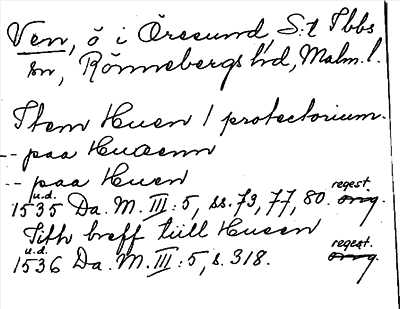 Ven, ö i Öresund, S:t Ibbs
sn, Rönnebergs hd, Malm. l.
Item Huen 1 protectorium.
-- paa Huaenn
-- paa Huen
u.d. regest.
1535 Da. M. III: 5, ss. 73, 77, 80. orig.
Titb breff till Huen
u.d. regest.
1536 Da. M. III: 5, s. 318. orig.